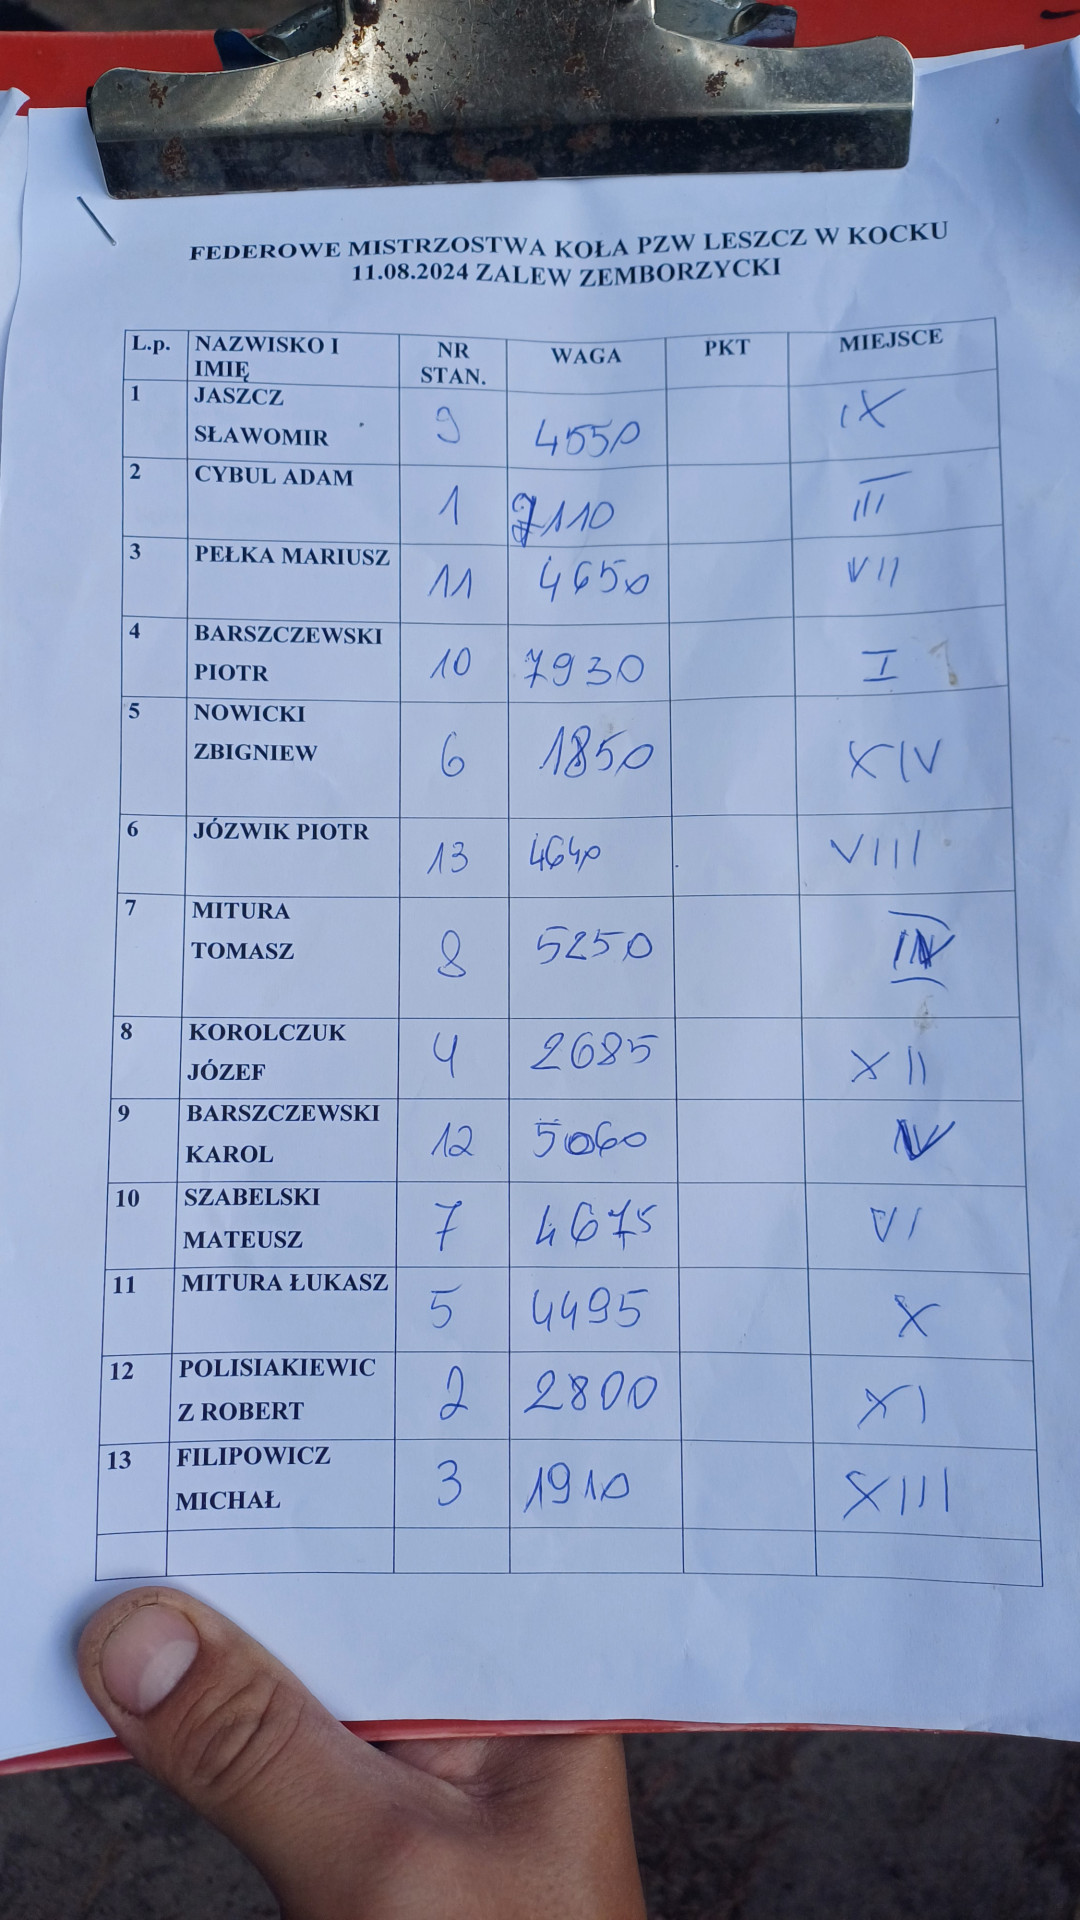 FEDEROWE MISTRZOSTWA KOŁA PZW LESZCZ W KOCKU
11.08.2024 ZALEW ZEMBORZYCKI
L.p. NAZWISKO I IMIĘ NR STAN. WAGA PKT MIEJSCE
1 JASZCZ SŁAWOMIR 9 4550 IX
2 CYBUL ADAM 1 7110 III
3 PEŁKA MARIUSZ 11 4650 VII
4 BARSZCZEWSKI PIOTR 10 7930 I
5 NOWICKI ZBIGNIEW 6 1850 XIV
6 JÓZWIK PIOTR 13 4640 VIII
7 MITURA TOMASZ 8 5250
8 KOROLCZUK JÓZEF 4 2685 XII
9 BARSZCZEWSKI KAROL 12 5060
10 SZABELSKI MATEUSZ 7 4675 VI
11 MITURA ŁUKASZ 5 4495 X
12 POLISIAKIEWIC
Z ROBERT 2 2800 XI
13 FILIPOWICZ MICHAŁ 3 1910 XIII